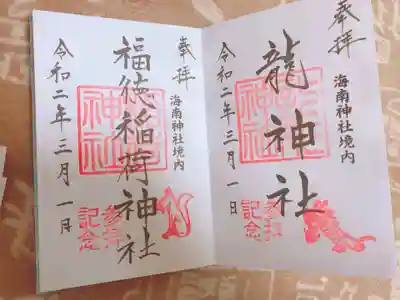 奉拝
海南神社境内
龍神社
令和二年三月一日
参拝
記念
奉拝
海南神社境内
福徳稲荷神社
令和二年三月一日
参拝
記念